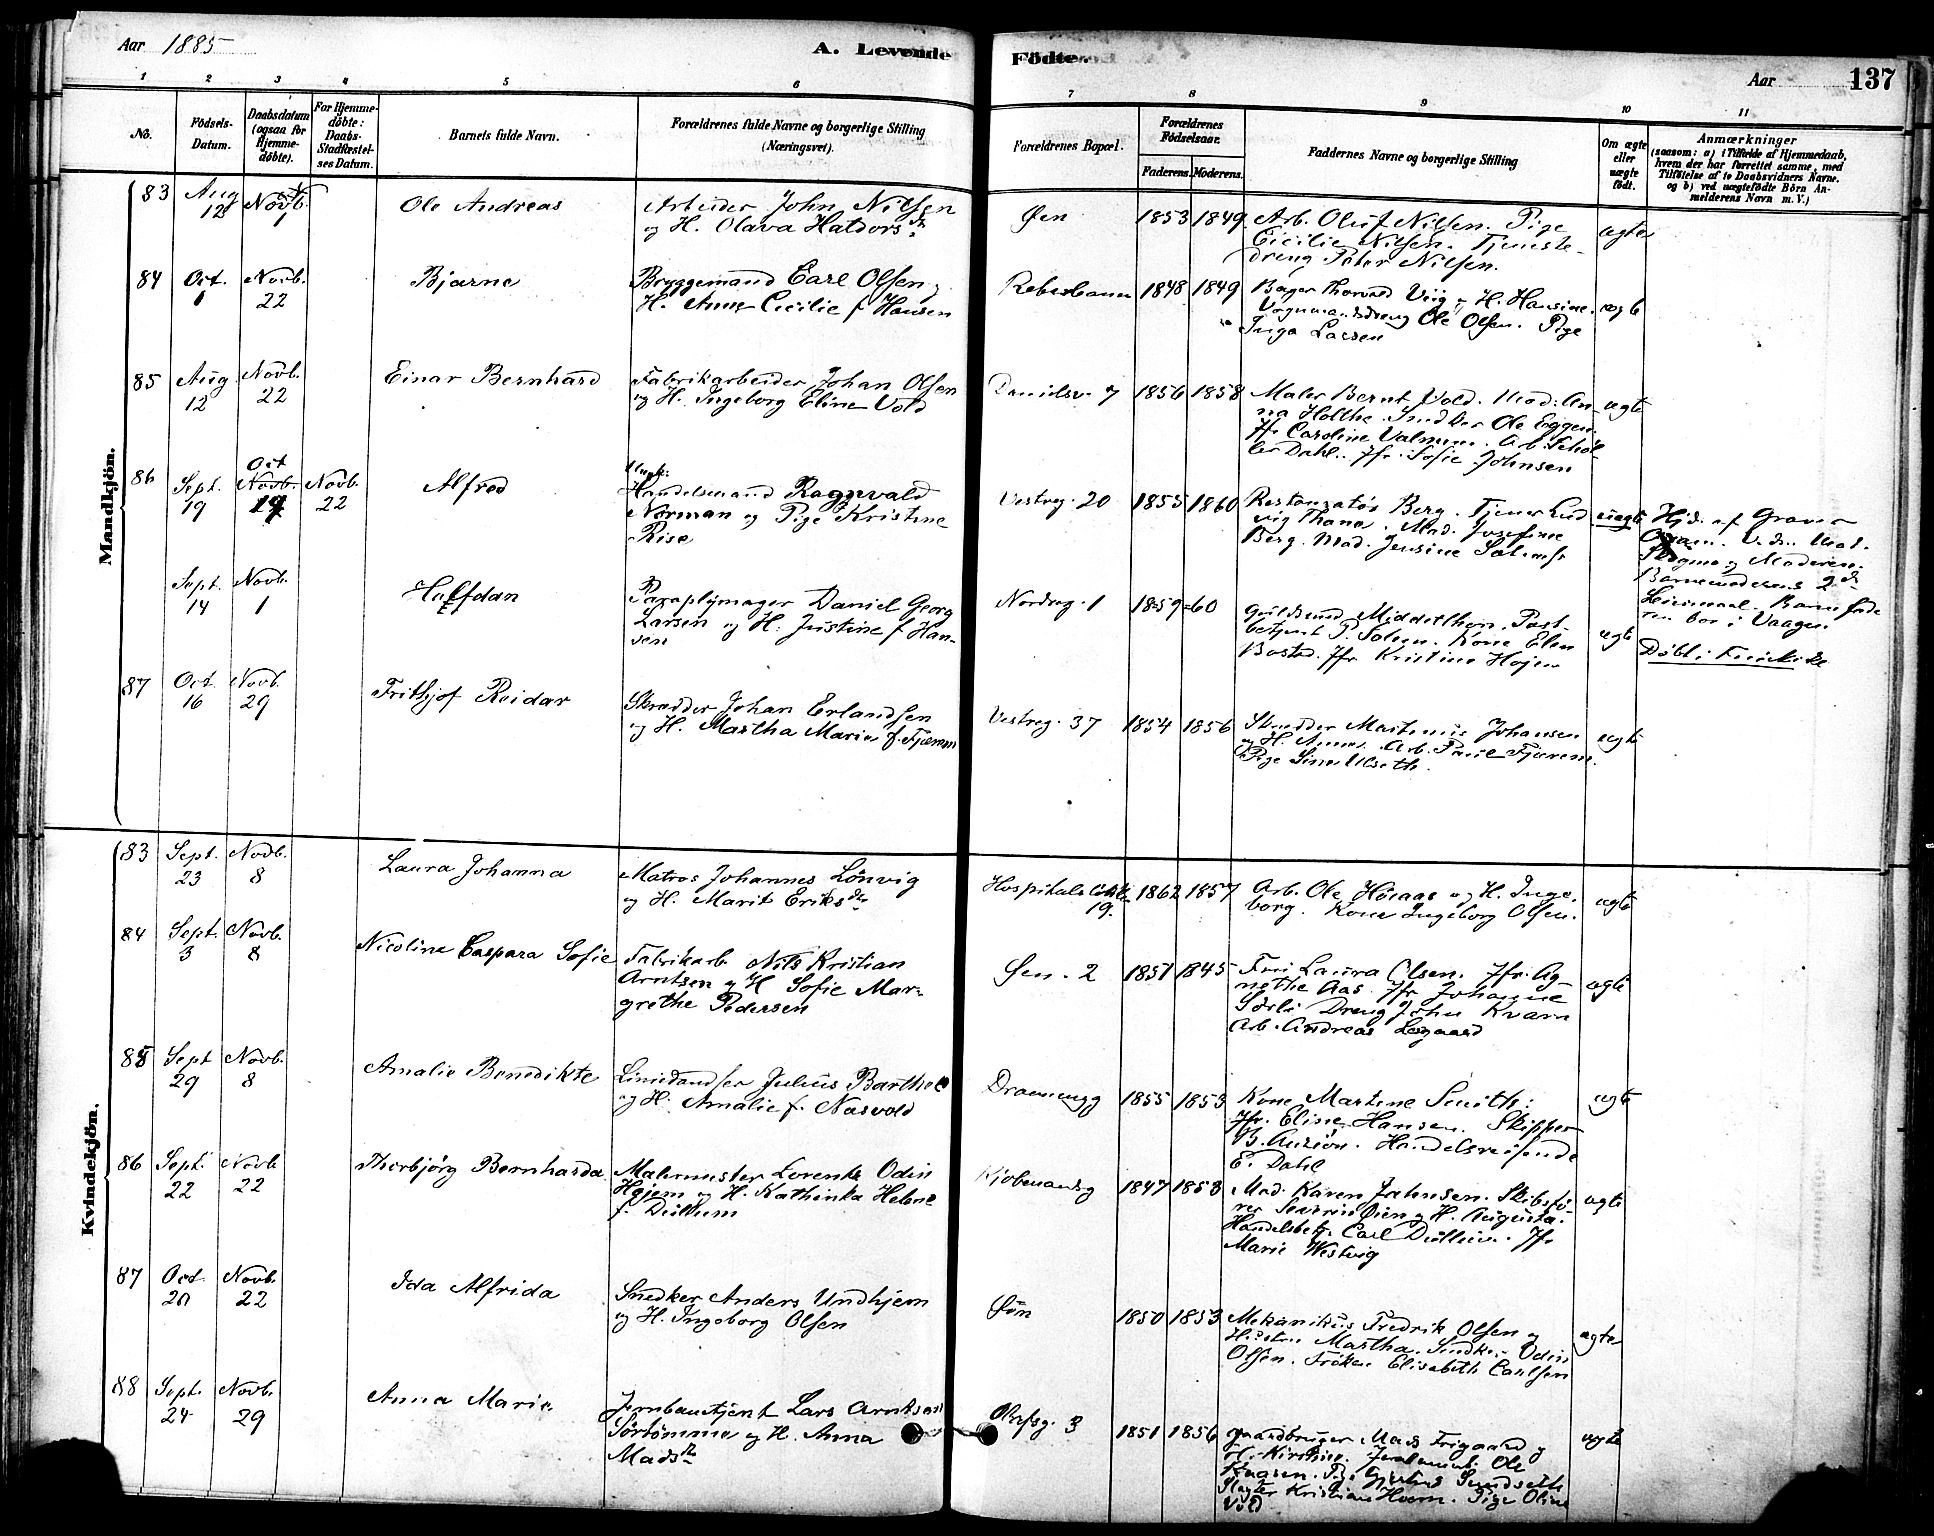 Aar 1885
A. Levende Födte.
Aar
137
1 2 3 4 5 6 7 8 9 10 11
No.
Födsels-Datum.
Daabsdatum (ogsaa for Hjemme-döbte).
For Hjemme-döbte: Daabs-Stadfæstel-ses Datum.
Barnets fulde Navn.
Forældrenes fulde Navne og borgerlige Stilling (Næringsvei).
Forældrenes Bopæl.
Forældrenes Födselsaar.
Faderens. Moderens.
Faddernes Navne og borgerlige Stilling
Om ægte eller uægte födt.
Anmærkninger
(saasom: a) i Tilfælde af Hjemmedaab,
hvem der har forrettet samme, med
Tilföielse af to Daabsvidners Navne.
og b) ved uægtefödte Börn An-
melderens Navn m. V.)
Mandkjön.
83 Aug 12 Novb. 1 Ole Andreas
Arbeider John Nilsen
og H. Olava Haldorsdr
Øen 1853 1849
Arb. Oluf Nilsen. Pige
Cicilie Nilsen. Tjeneste-
dreng Peter Nilsen.
ægte
84 Oct. 1 Novb. 22 Bjarne
Bryggemand Carl Olsen
H. Anne Cecilie f Hansen
1848 1849
Bager Thorvald Viig - H. Hansine.
Vognmandsdreng Ole Olsen. Pige
Inga Larsen
ægte
85 Aug. 12 Novb. 22 Einar Bernhard
Fabrikarbeider Johan Olsen
og H. Ingeborg Eline Vold
Danielsv. 7 1856 1858
Maler Bernt Vold. Mad. An-
na Holthe. Snedker Ole Eggen.
Jfr Caroline
Dahl. Jfr. Sofie Johnsen
ægte
86 Sept. 19 Oct Novb. 19 Novb. 22 Alfred
Ungk.
Handelsmand Ragnvald
Norman og Pige Kristine
Rise
Vestreg. 20 1855 1860
Berg. Tjener Lud
vig Thane. Mad. Josefine
Berg. Mad. Jensine
uægte
Hjd. af
og Moderen.
Barnemoderens 2det
Leiermaal. Barnefade
ren bor i Vaagen
Sept. 14 Novb. 1 Halfdan
Paraplymager Daniel Georg
Larsen og H. Justine f Han-
sen
Nordreg. 1 1859 - 60
Guldsmed Middelthon. Post-
betjent P. Solem. Kone Elen
Bostad. Jfr Kristine Hojem
ægte
Döbt i
87 Oct. 16 Novb. 29 Frithjof Reidar
Skrædder Johan Erlandsen
og H. Martha Marie f. Fjærem
Vestreg. 37 1854 1856
Skrædder Martinus Johansen
og H. Anne. Arb. Paul Fjærem.
Pige Sina Ulseth.
ægte
Kvindekjön.
83 Sept. 23 Novb. 8 Laura Johanna
Matros Johannes Lönvig
og H. Marit Eriksdr
19. 1862 1857
Arb. Ole Höiaas og H. Inge-
borg. Kone Ingeborg Olsen.
ægte
84 Sept. 3 Novb. 8 Nicoline Caspara Sofie
Fabrikarb Nils Kristian
Arntsen og H Sofie Mar-
grethe Pedersen
Øen. 2 1851 1845
Fru Laura Olsen. Jfr. Ag-
nethe Aas. Jfr Johanne
Sörli Dreng John Kvam
Arb. Andreas Legaard
ægte
85 Sept 29 Novb. 8 Amalie Benedikte
Liniedandser Julius Barthel
og H. Amalie f. Næsvold
1855 1853
Kone Martine Smith.
Jfr. Eline Hansen. Skipper
Handelsreisende
E. Dahl
ægte
86 Sept. 22 Novb 22 Thorbjörg Bernharda
Malermester Lorents Odin
Hojem og H. Kathinka Helene
f. Duilhum
1847 1858
Mad. Karen Jahnsen. Skibsfö-
rer Severin Oien og H. Augusta.
Handelsbetj. Carl Jfr
Marie Westvig
ægte
87 Oct. 20 Novb. 22 Ida Alfrida
Snedker Anders Undhjem
og H. Ingeborg Olsen
Øen 1850 1853
Mekanikus Fredrik Olsen og
Hustru Martha. Snedker Odin
Olsen. Fröken Elisabeth Carlsen
ægte
88 Sept. 24 Novb. 29 Anna Marie
Jernbanetjent Lars Arntsen
Sörtömme og H. Anna
Madsdr
3 1851 1856
Gaardbruger Mads Frigaard og
H. Kirstine. Ole
Slagter Kristian Moen. Pige Oline
Vold
ægte